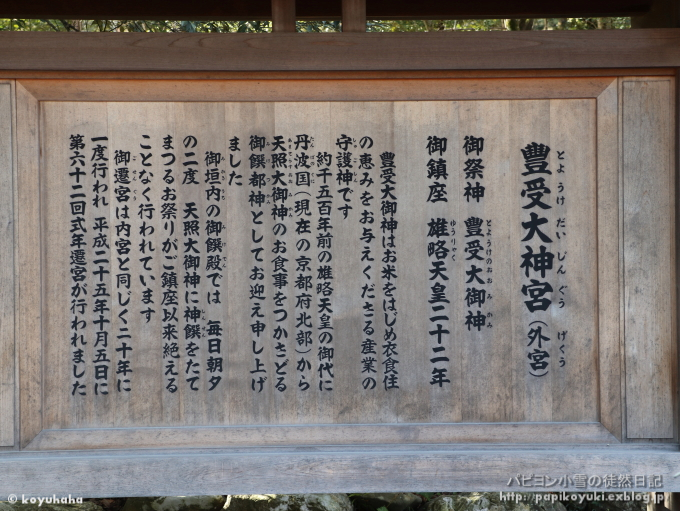 豊受大神宮(外宮)
とようけだいじんぐう げくう
御祭神 豊受大御神
とようけのおおみかみ
御鎮座 雄略天皇二十二年
ゆうりゃく
豊受大御神はお米をはじめ衣食住
の恵みをお与えくださる産業の
守護神です
約千五百年前の雄略天皇の御代に
丹波国(現在の京都府北部)から
天照大御神のお食事をつかさどる
御饌都神としてお迎え申し上げ
ました
御垣内の御饌殿では 毎日朝夕
の二度 天照大御神に神饌をたて
まつるお祭りがご鎮座以来絶える
ことなく行われています
御遷宮は内宮と同じく二十年に
一度行われ 平成二十五年十月五日に
第六十二回式年遷宮が行われました
© koyuhaha
パピヨン小雪の徒然日記
http://papikoyuki.exblog.jp